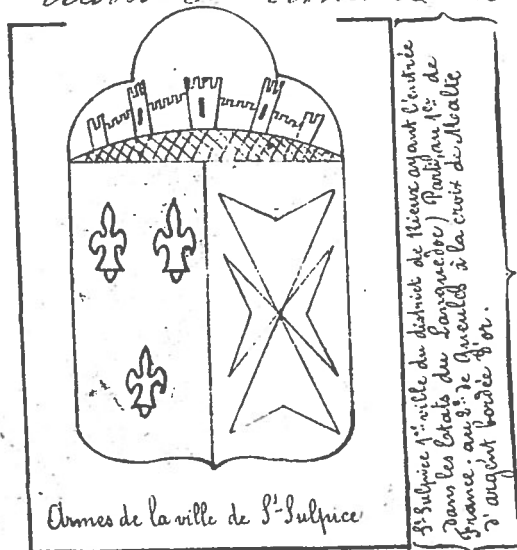 Armes de la ville de St-Sulpice
St Sulpice 1re ville du district de Rieux ayant l'entrée
dans les Etats du Languedoc) Parti, au 1er de
France; au 2e de Gueules à la croix de Malte
d'argent bordée d'or.